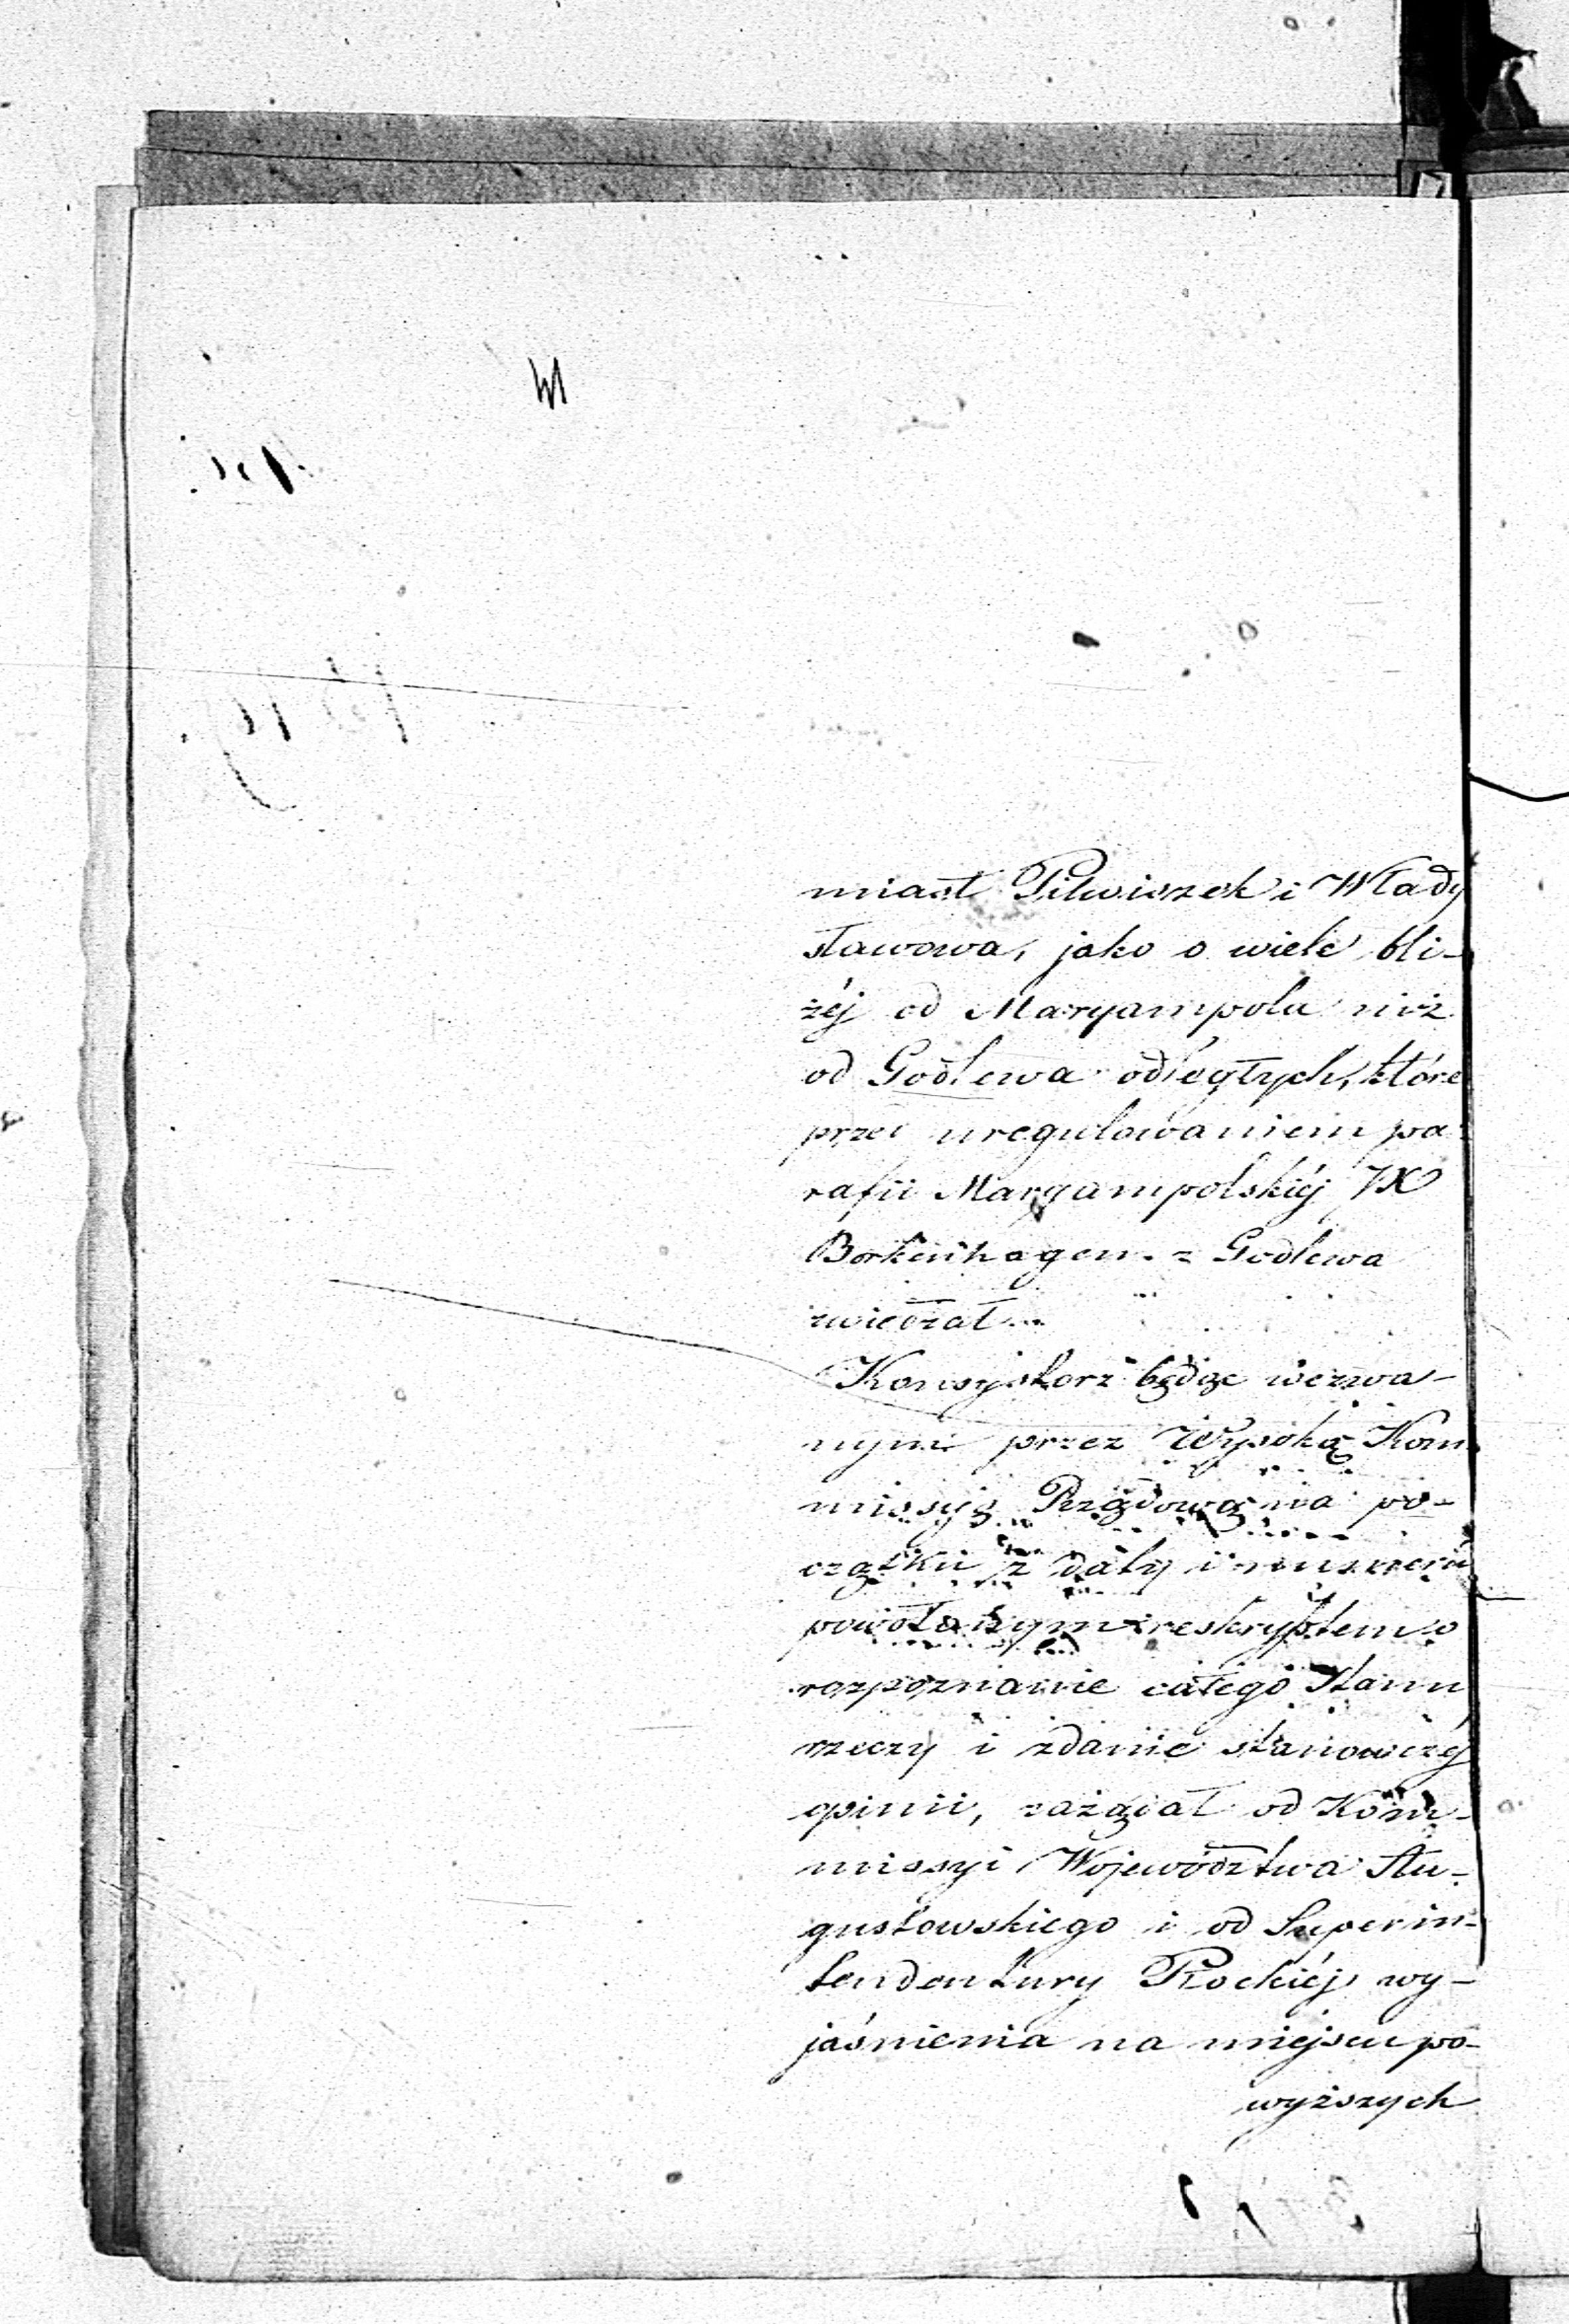 miast Pilwiszek i Włady
sławowa, jako o wiele bli-
żéj od Maryampola niż
od Godlewa odległych, które
przed uregulowaniem pa-
rafii Maryampolskiéj JX
Borkenhagen z Godlewa
zwiedzał.
Konsystorz będąc wezwa-
nym przez Wysoką Kom-
missyą Rządową na po-
czątku z daty i numeru
powołanym reskryptem o
rozpoznanie całego stanu
rzeczy i zdanie stanowczéj
opinii, zażądał od Kom-
missyi Województwa Au-
gustowskiego i od Superin-
tendentury Płockiéj wy-
jaśnienia na miejscu po-
wyższych